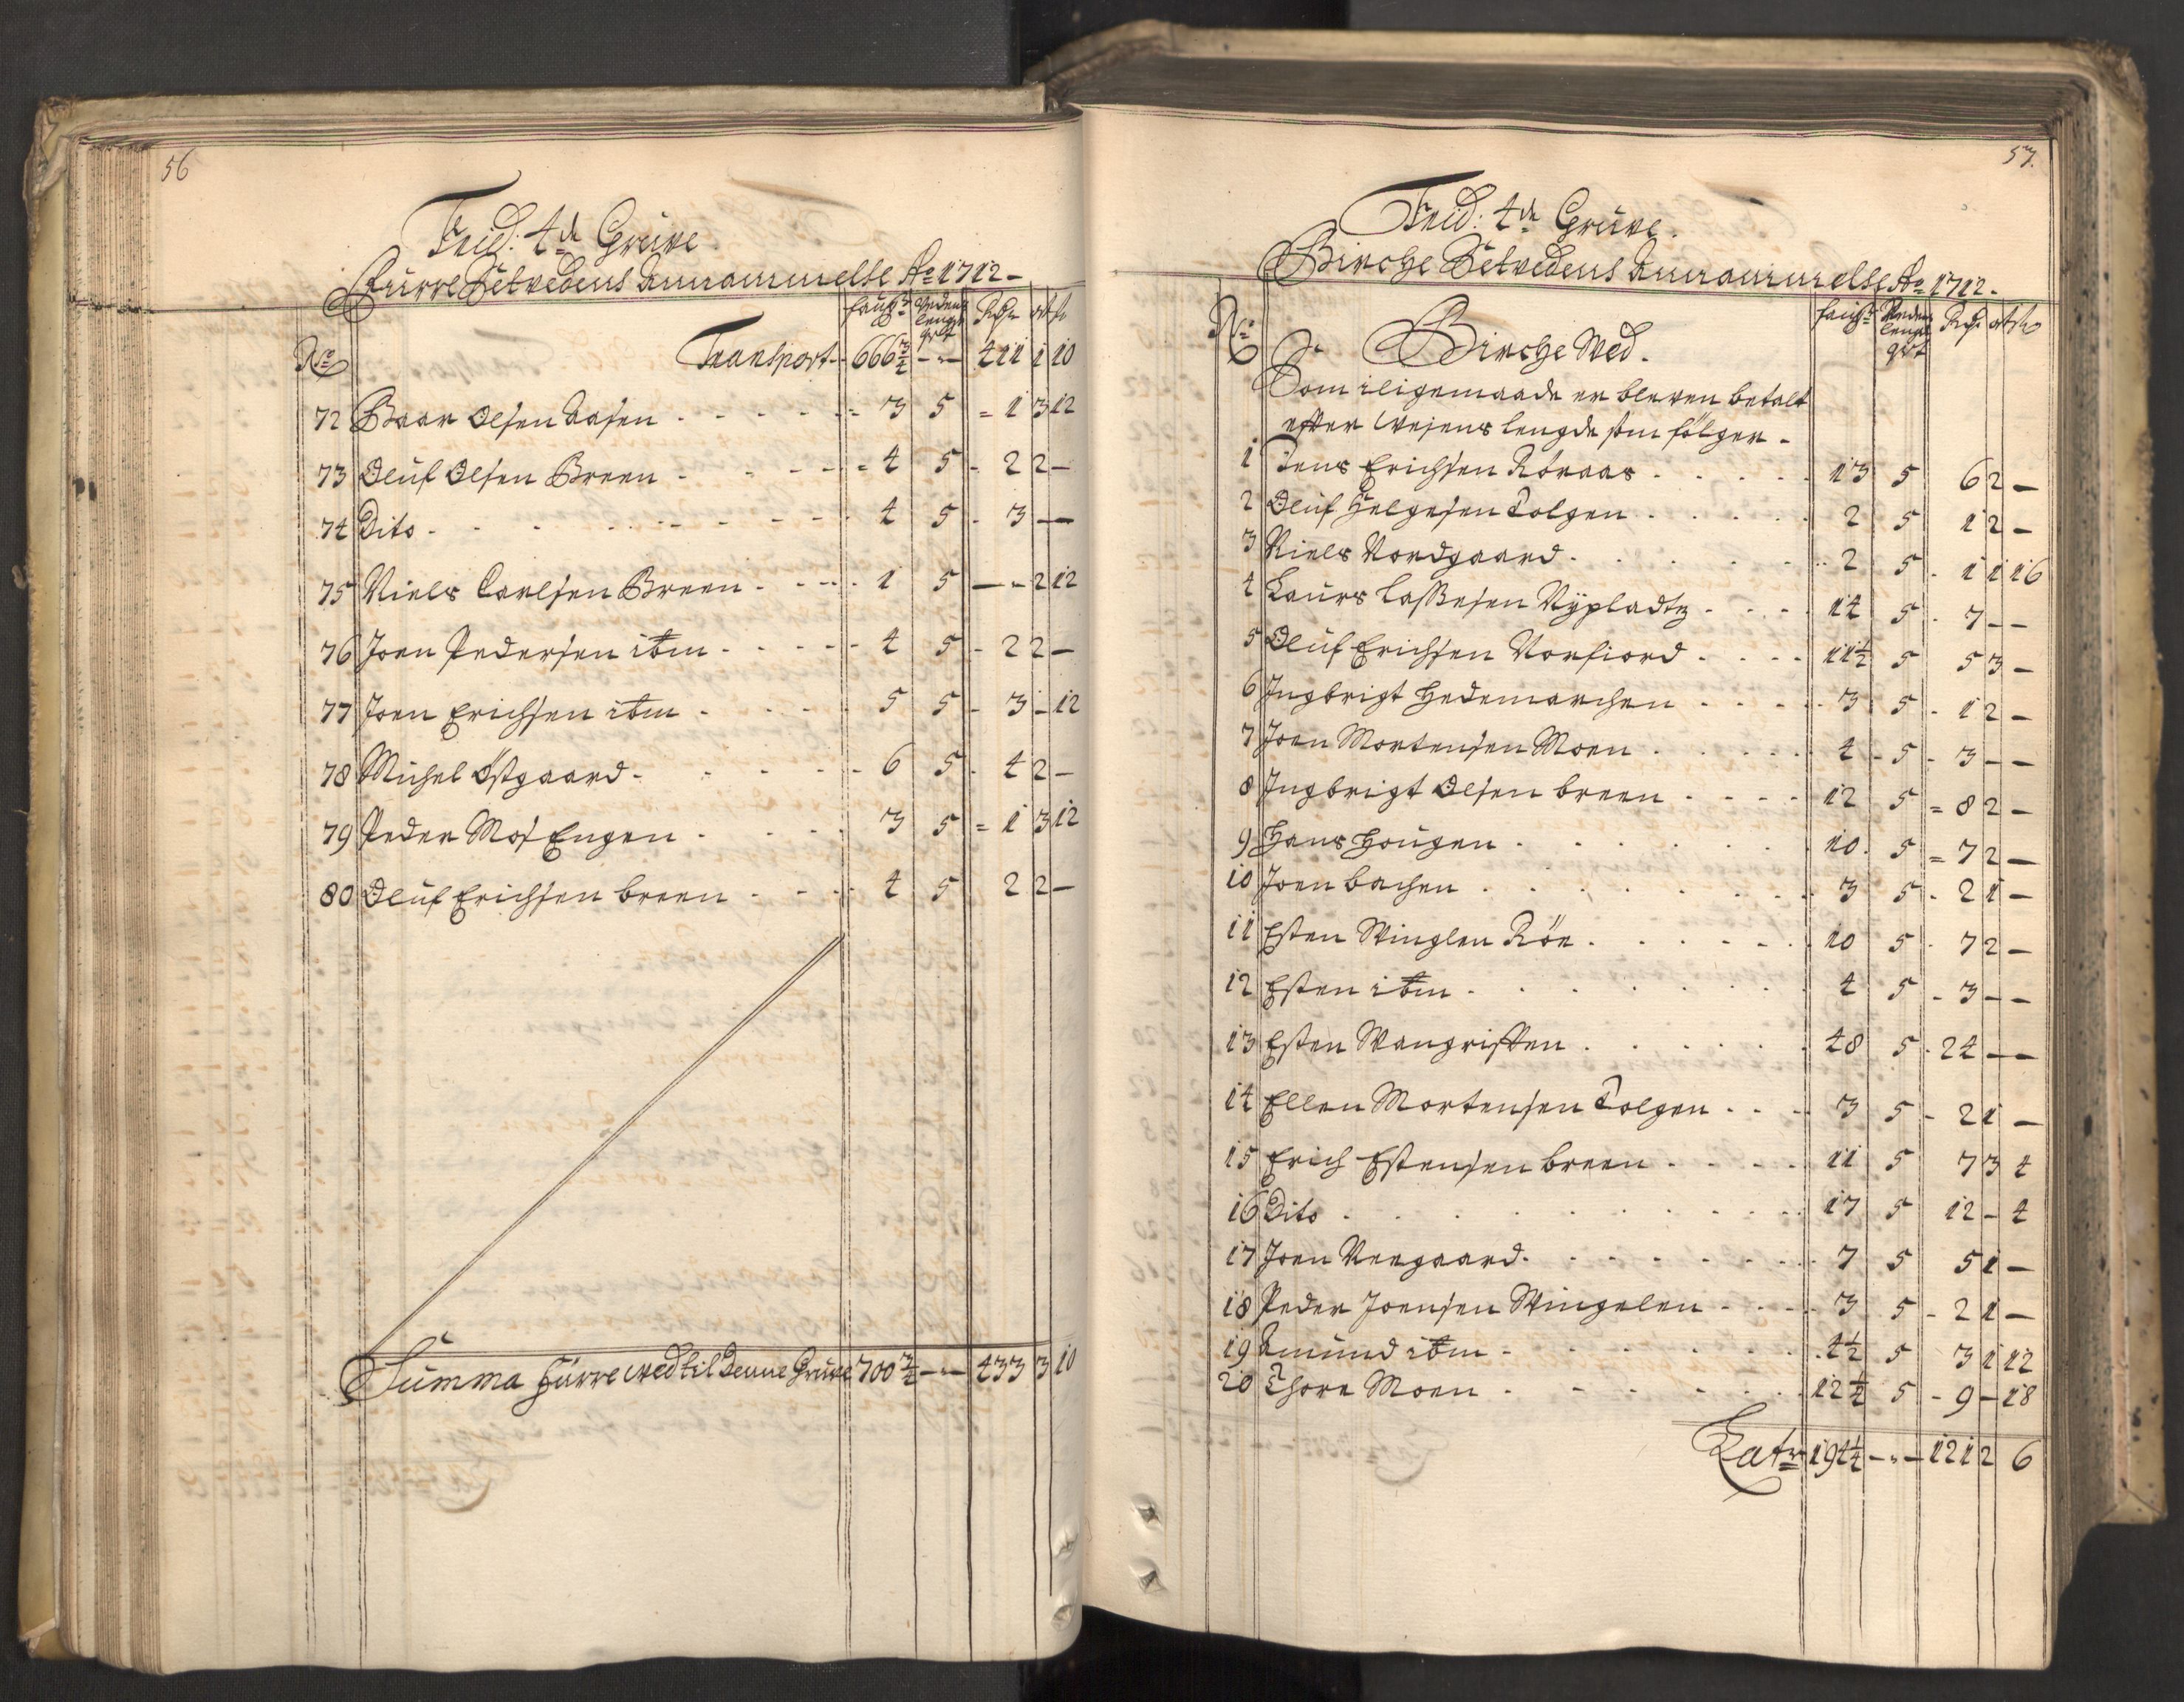 56
Frid: 4de Gruve.
Furre Setvedens Annammelse Ao 1712 -
No
faufn: Vedens lengde qrt Rdr ort sk
Transport - - 666 3/4 - - 411 1 10
72 Baar Olsen Aasen - 3 5 = 1 3 12
73 Oluf Olsen Breen - 4 5 - 2 2 -
74 Dito - 4 5 - 3 - -
75 Niels Carlsen Breen - 1 5 - - 2 12
76 Joen Pedersen ibm - 4 5 - 2 2 -
77 Joen Erichsen ibm - 5 5 - 3 - 12
78 Michel Östgaard - 6 5 - 4 2 -
79 Peder Mos Engen - 3 5 = 1 3 12
80 Oluf Erichsen breen - 4 5 2 2 -
Summa Furre wed til denne Gruve 700 3/4 - - 433 3 10
57.
Frid: 4de Gruve.
Birche Setvedens Annammelse Ao 1712 -
No
Vedens lengde qrt Rdr ort sk
Birche Wed.
Som iligemaade er bleven betalt
efter Wejens lengde som fölger -
1 Jens Erichsen Röraas - 13 5 6 2 -
2 Oluf Helgesen Tolgen - 2 5 1 2 -
3 Niels Nordgaard - 2 5 - 1 1 16
4 Laurs Lassesen Nÿpladtz - 14 5 - 7 - -
5 Oluf Erichsen Norfiord - 11 1/2 5 5 3 -
6 Ingbrigt Hedemarchen - 3 5 - 1 2 -
7 Joen Mortensen Moen - 4 - 5 - 3 - -
8 Ingbrigt Olsen breen - 12 5 = 8 2 -
9 Hans Hougen - 10 5 = 7 2 -
10 Joen bachen - 3 5 - 2 1 -
11 Esten Winglen Röe - 10 5 - 7 2 -
12 Esten ibm - 4 5 - 3 - -
13 Esten Wangrisften - 48 5 - 24 - -
14 Ellen Mortensen Tolgen - 3 5 - 2 1 -
15 Erich Estensen breen - 11 5 7 3 4
16 Dito - 17 5 12 - 4
17 Joen Neegaard - 7 5 5 1 -
18 Peder Joensen Wingelen - 3 5 - 2 1 -
19 Amund ibm - 4 1/2 5 3 1 12
20 Thore Moen - 12 1/4 5 - 9 - 18
Latr 194 1/4 - - 121 2 6